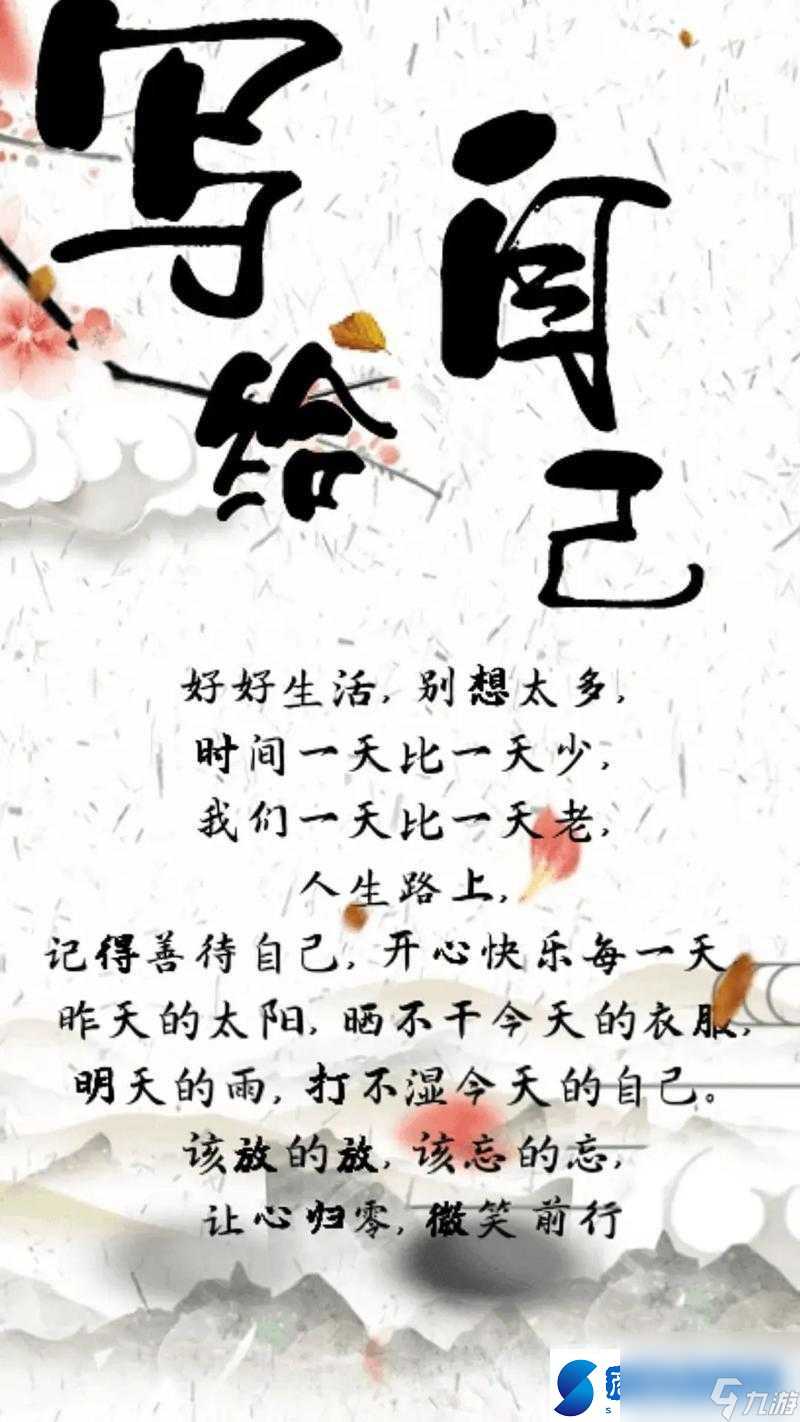 写给
自己
好好生活，别想太多，
时间一天比一天少，
我们一天比一天老，
人生路上，
记得善待自己，开心快乐每一天
昨天的太阳，晒不干今天的衣服，
明天的雨，打不湿今天的自己。
该放的放，该忘的忘，
让心归零，微笑前行
九游